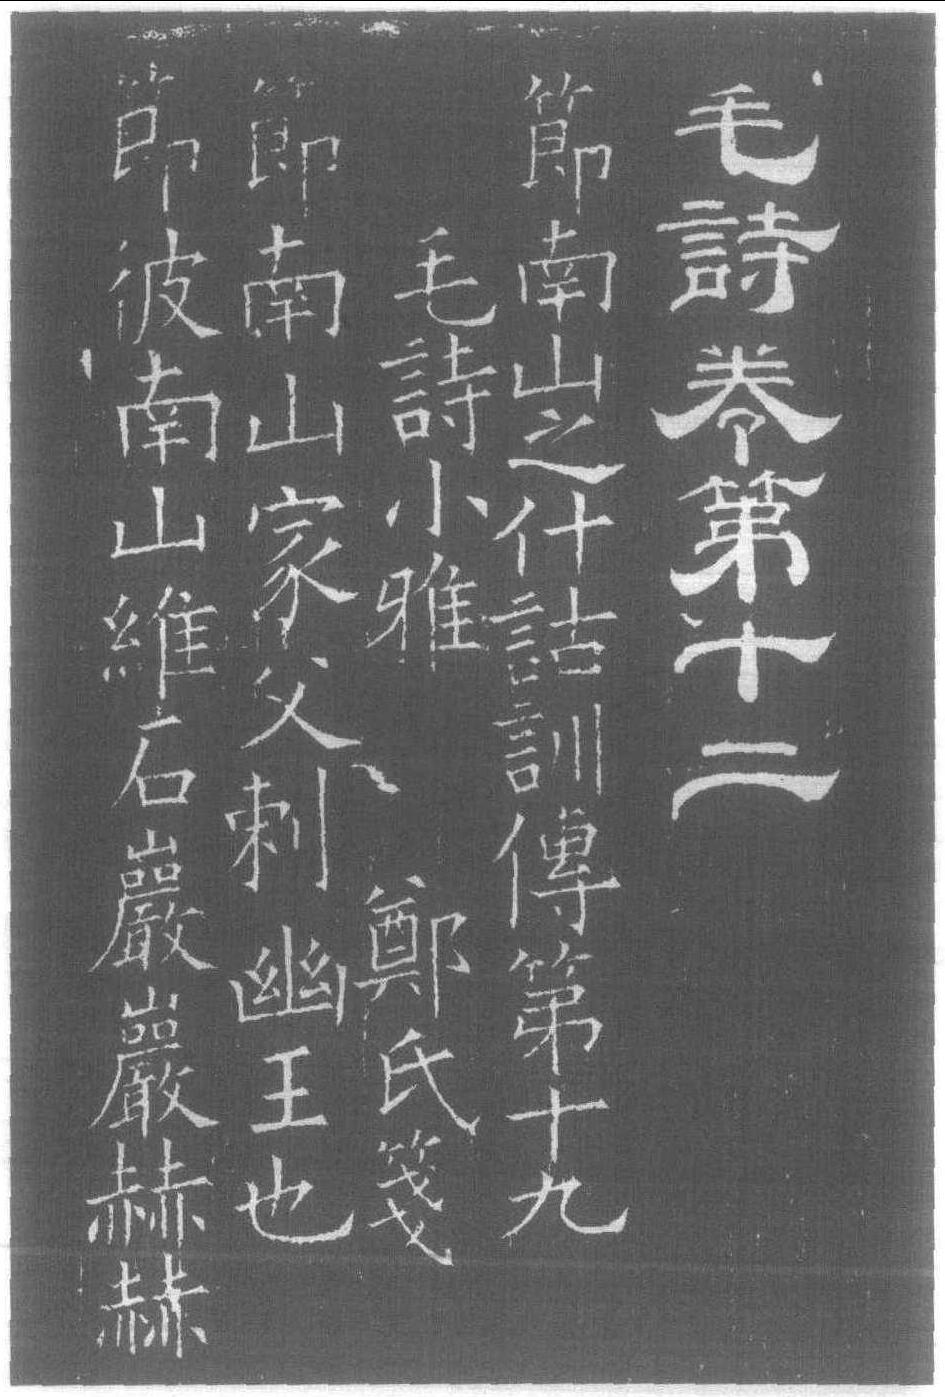 毛詩卷第十二
節南山之什詁訓傳第十九
毛詩小雅 鄭氏箋
節南山家父刺幽王也
節彼南山維石巖巖赫赫